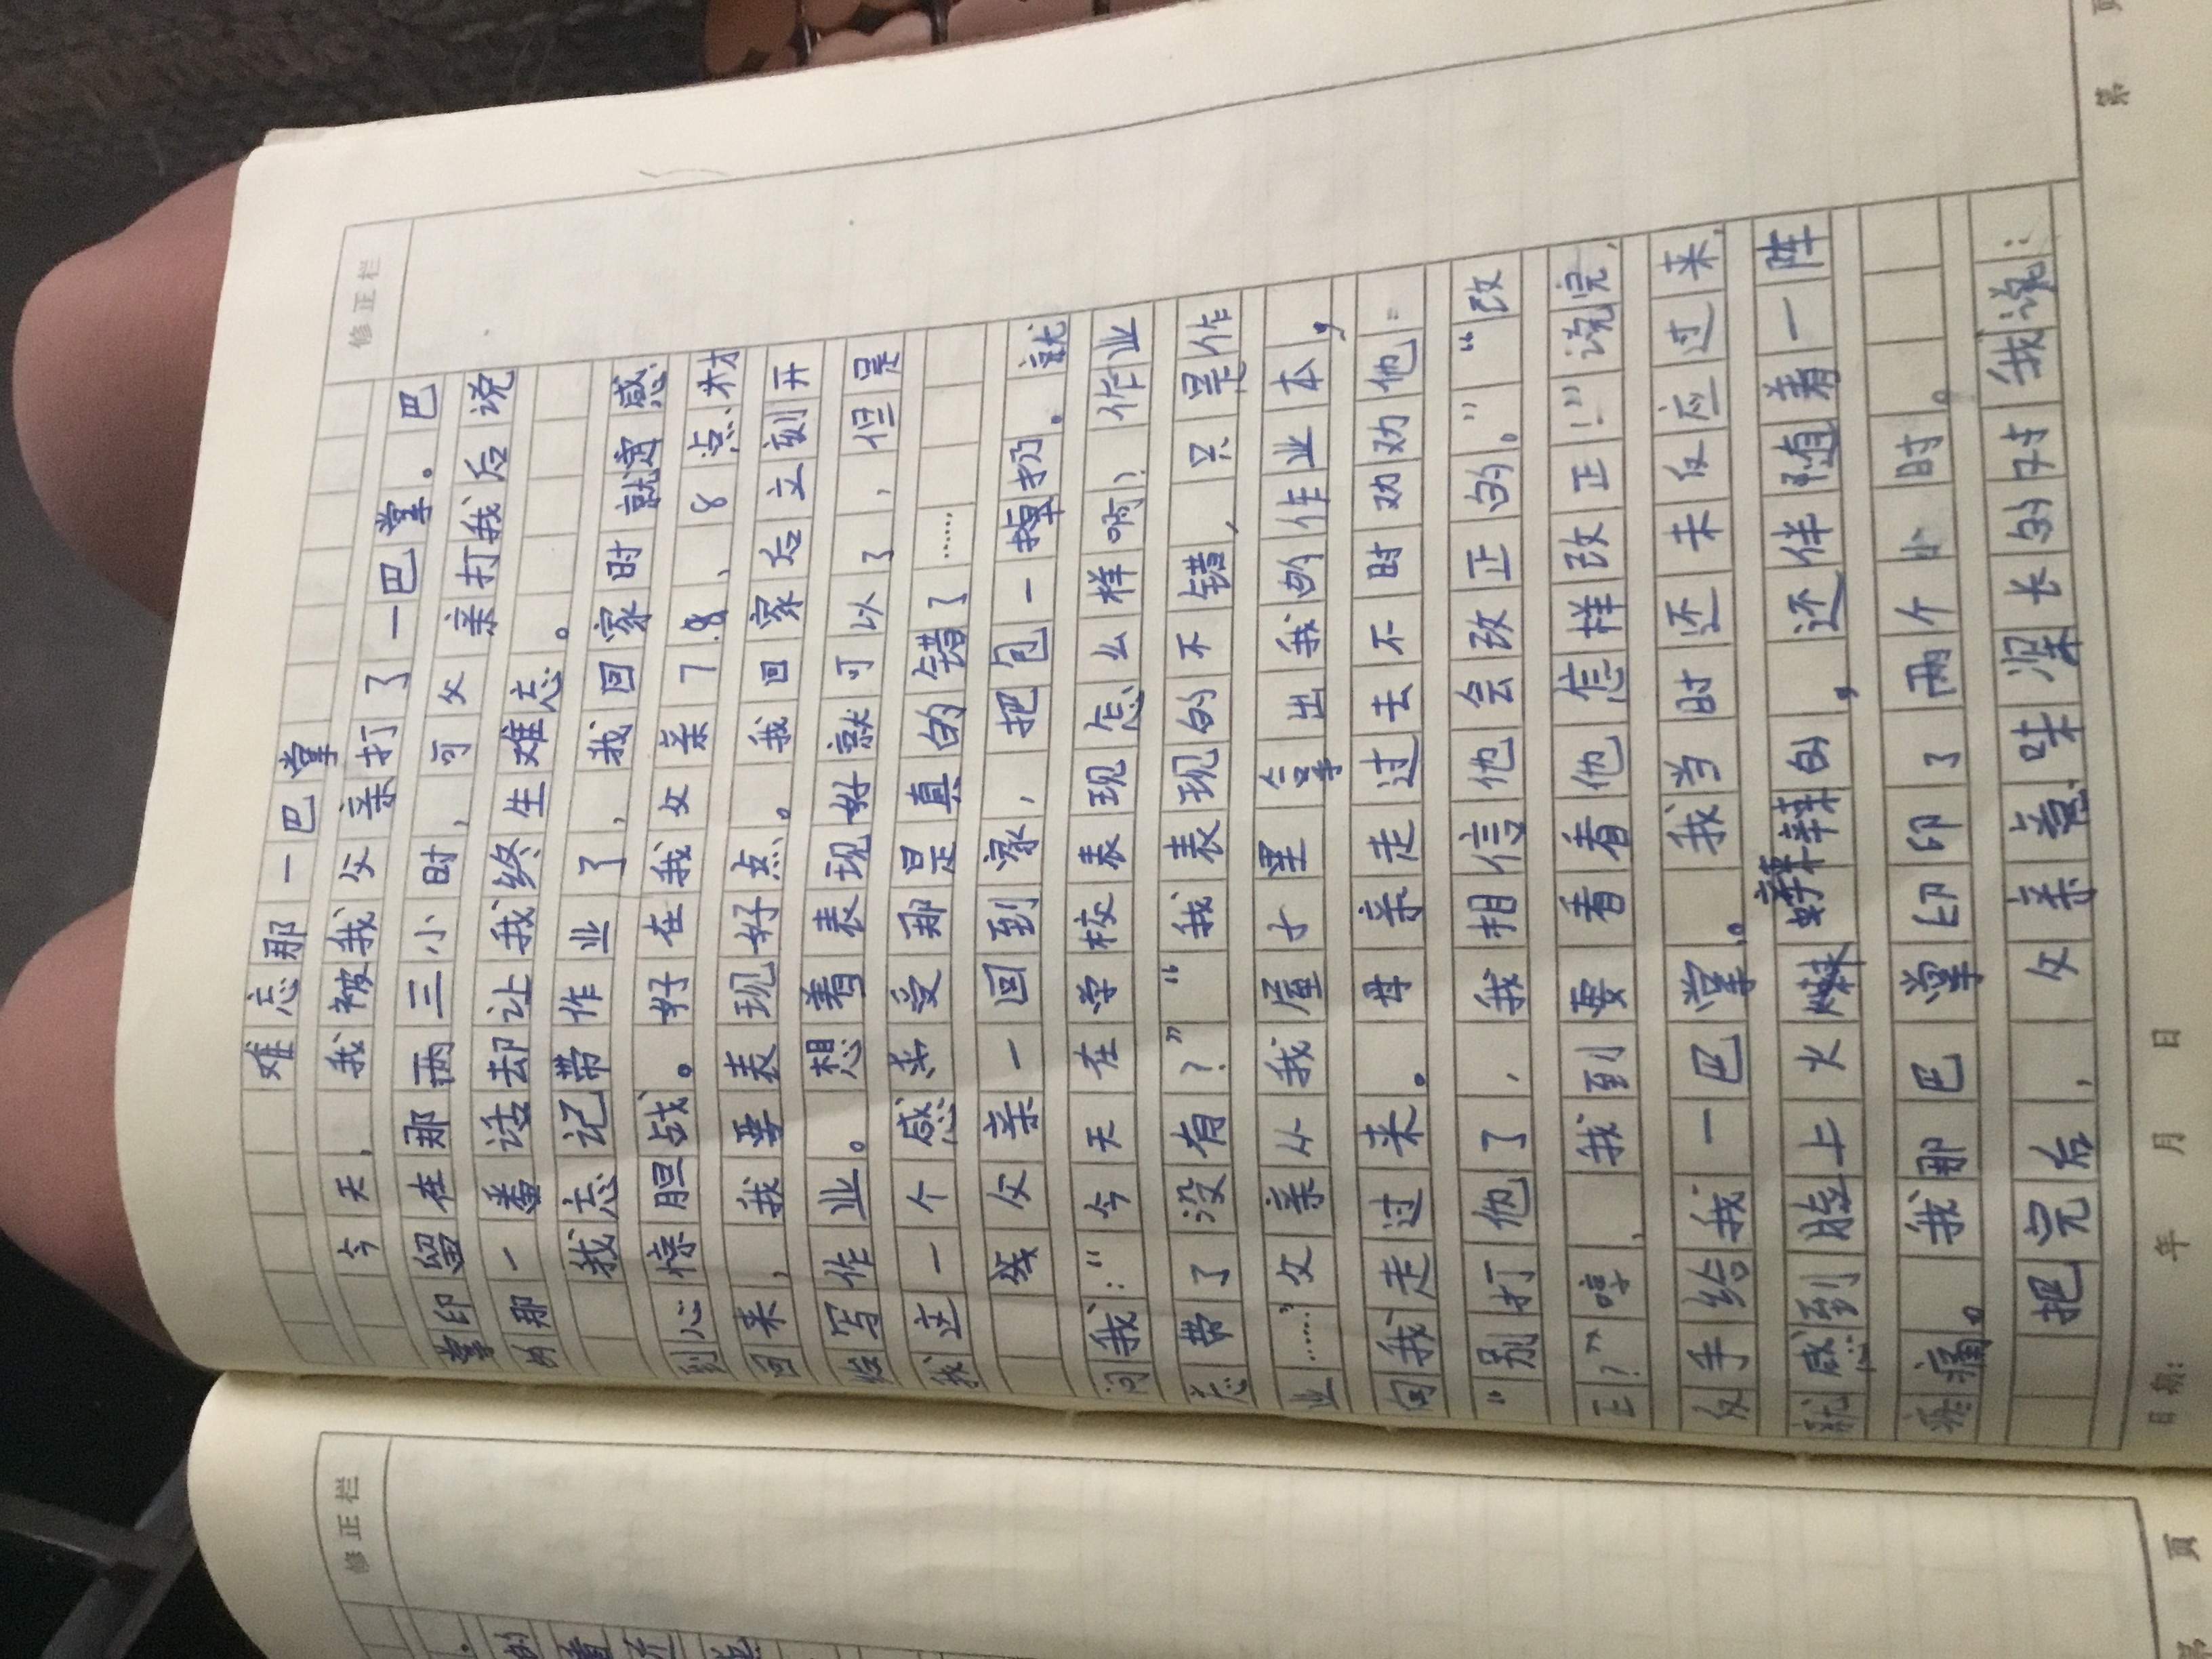 修正栏
难忘那一巴掌
今天，我被我父亲打了一巴掌。巴
掌印留在那两三小时，可父亲打我后说
的那一番话却让我终生难忘。
我忘记带作业了，我回家时就定感
到心惊胆战。好在我父亲7.8、8点才
回来，我要表现好点。我回家后立刻开
始写作业。想着表现好就可以了，但是
我这一个感求受那是真的错了……
父亲一回到家，把包一掉扔。就
问我：“今天在学校表现怎么样啊，作业
忘带了没有？”“我表现的不错，只是作
业……”父亲从我屋子里拿出我的作业本，
向我走过来。母亲走过去不时劝劝他：
“别打他了，我相信他会改正的。”“改
正？”哼，我到要看看他怎样改正！”说完，
反手给我一巴掌。我当时还未反应过来，
就感到脸上火辣辣的，还伴随着一阵
疼痛。我那巴掌印印了两个小时。
把完后，父亲意味深长的对我说：
日期： 年 月 日
第 页
修正栏
第 页